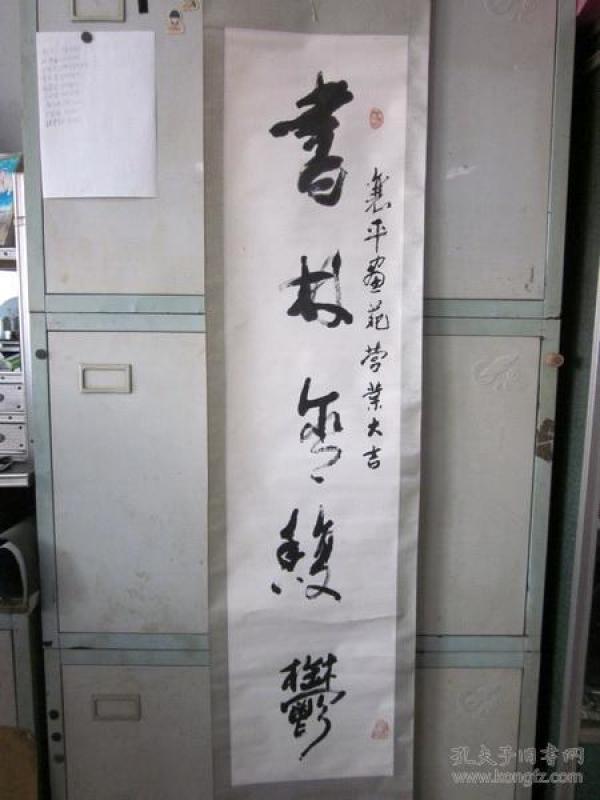 書林愈馥鬱
襄平畫苑营業大吉
孔夫子旧书网
www.kongfz.com